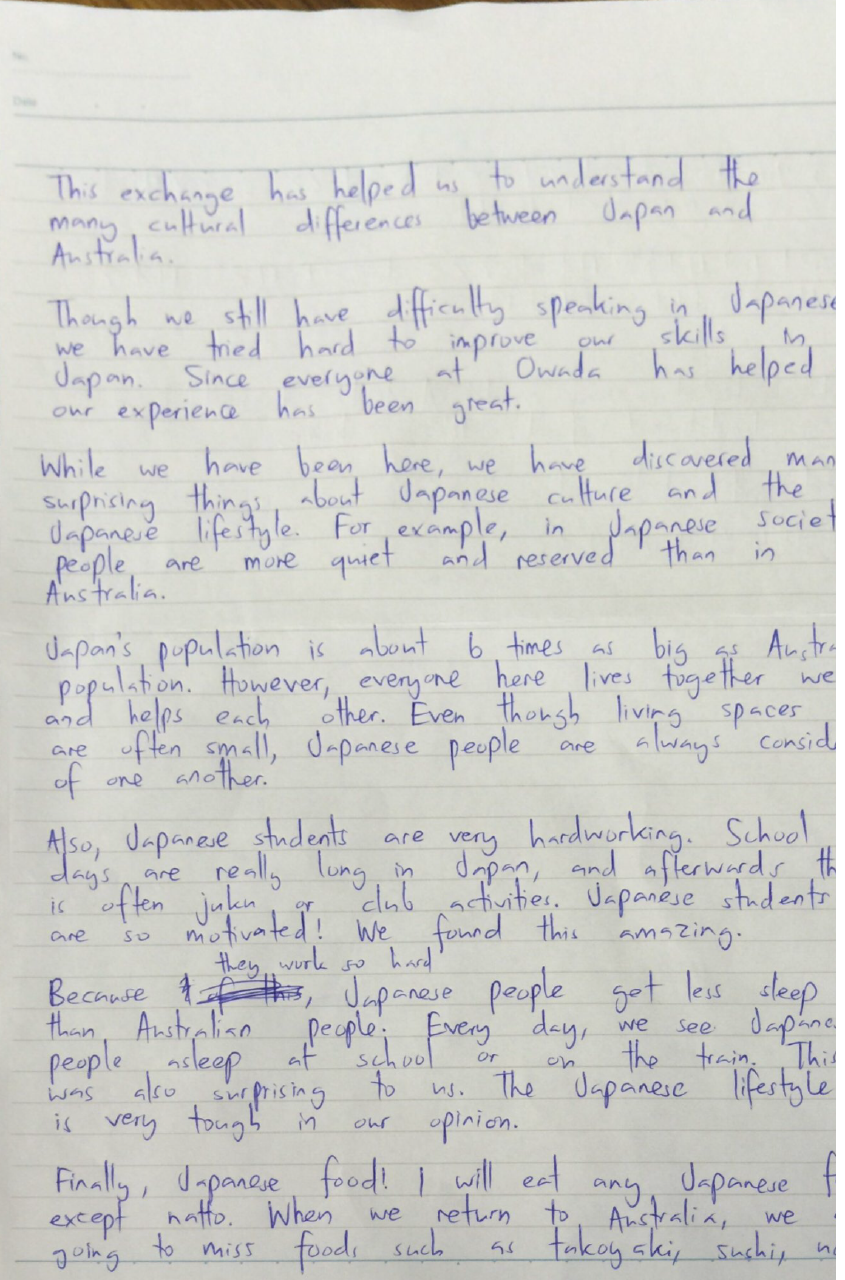 No.
Date
This exchange has helped us to understand the
many cultural differences between Japan and
Australia.
Though we still have difficulty speaking in Japanese
we have tried hard to improve our skills in
Japan. Since everyone at Owada has helped
our experience has been great.
While we have been here, we have discovered man
surprising things about Japanese culture and the
Japanese lifestyle. For example, in Japanese societ
people are more quiet and reserved than in
Australia.
Japan's population is about 6 times as big as Austra
population. However, everyone here lives together we
and helps each other. Even though living spaces
are often small, Japanese people are always consid
of one another.
Also, Japanese students are very hardworking. School
days are really long in Japan, and afterwards th
is often juku or club activities. Japanese students
are so motivated! We found this amazing.
they work so hard
Because of this, Japanese people get less sleep
than Australian people. Every day, we see Japane
people asleep at school or on the train. This
was also surprising to us. The Japanese lifestyle
is very tough in our opinion.
Finally, Japanese food! I will eat any Japanese f
except natto. When we return to Australia, we
going to miss foods such as takoyaki, sushi, n